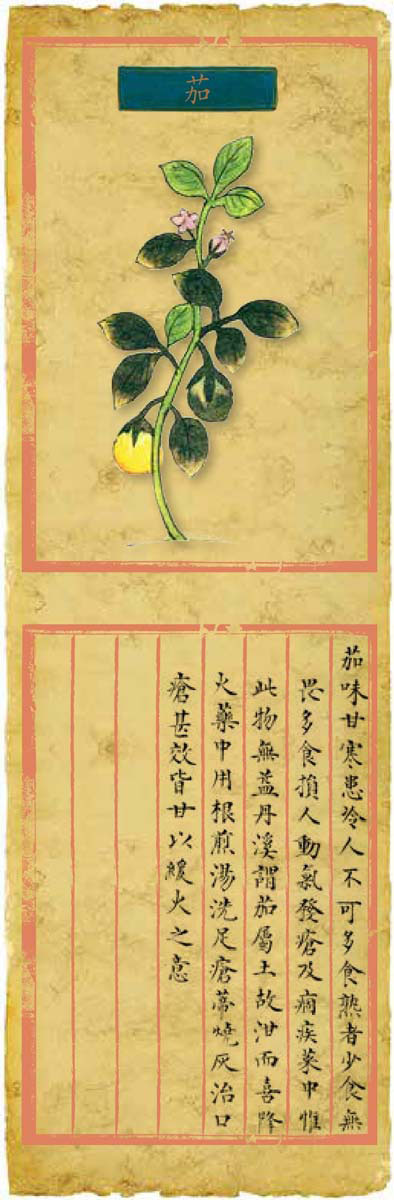 茄
茄味甘寒患冷人不可多食熟者少食無
畏多食損人動氣發瘡及痼疾菜中惟
此物無益丹溪謂茄屬土故泔而喜降
火藥中用根煎湯洗足瘡蒂燒灰治口
瘡甚效皆甘以緩火之意